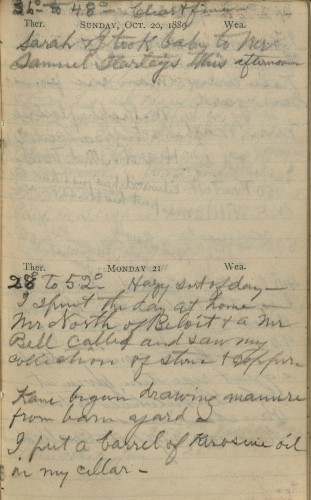 36° to 48° Clear & fine
Ther. SUNDAY, OCT. 20, 1889 Wea.
Sarah & I took baby to Mr
Samuel this afternoon
Ther. MONDAY 21 Wea.
28° to 52° Hazy sort of day—
I spent the day at home—
Mr North of Beloit & a Mr
Bell called and saw my
collection of stone & copper.
Kane begun drawing manure
from barn yard—
I put a barrel of Kerosine oil
in my cellar—